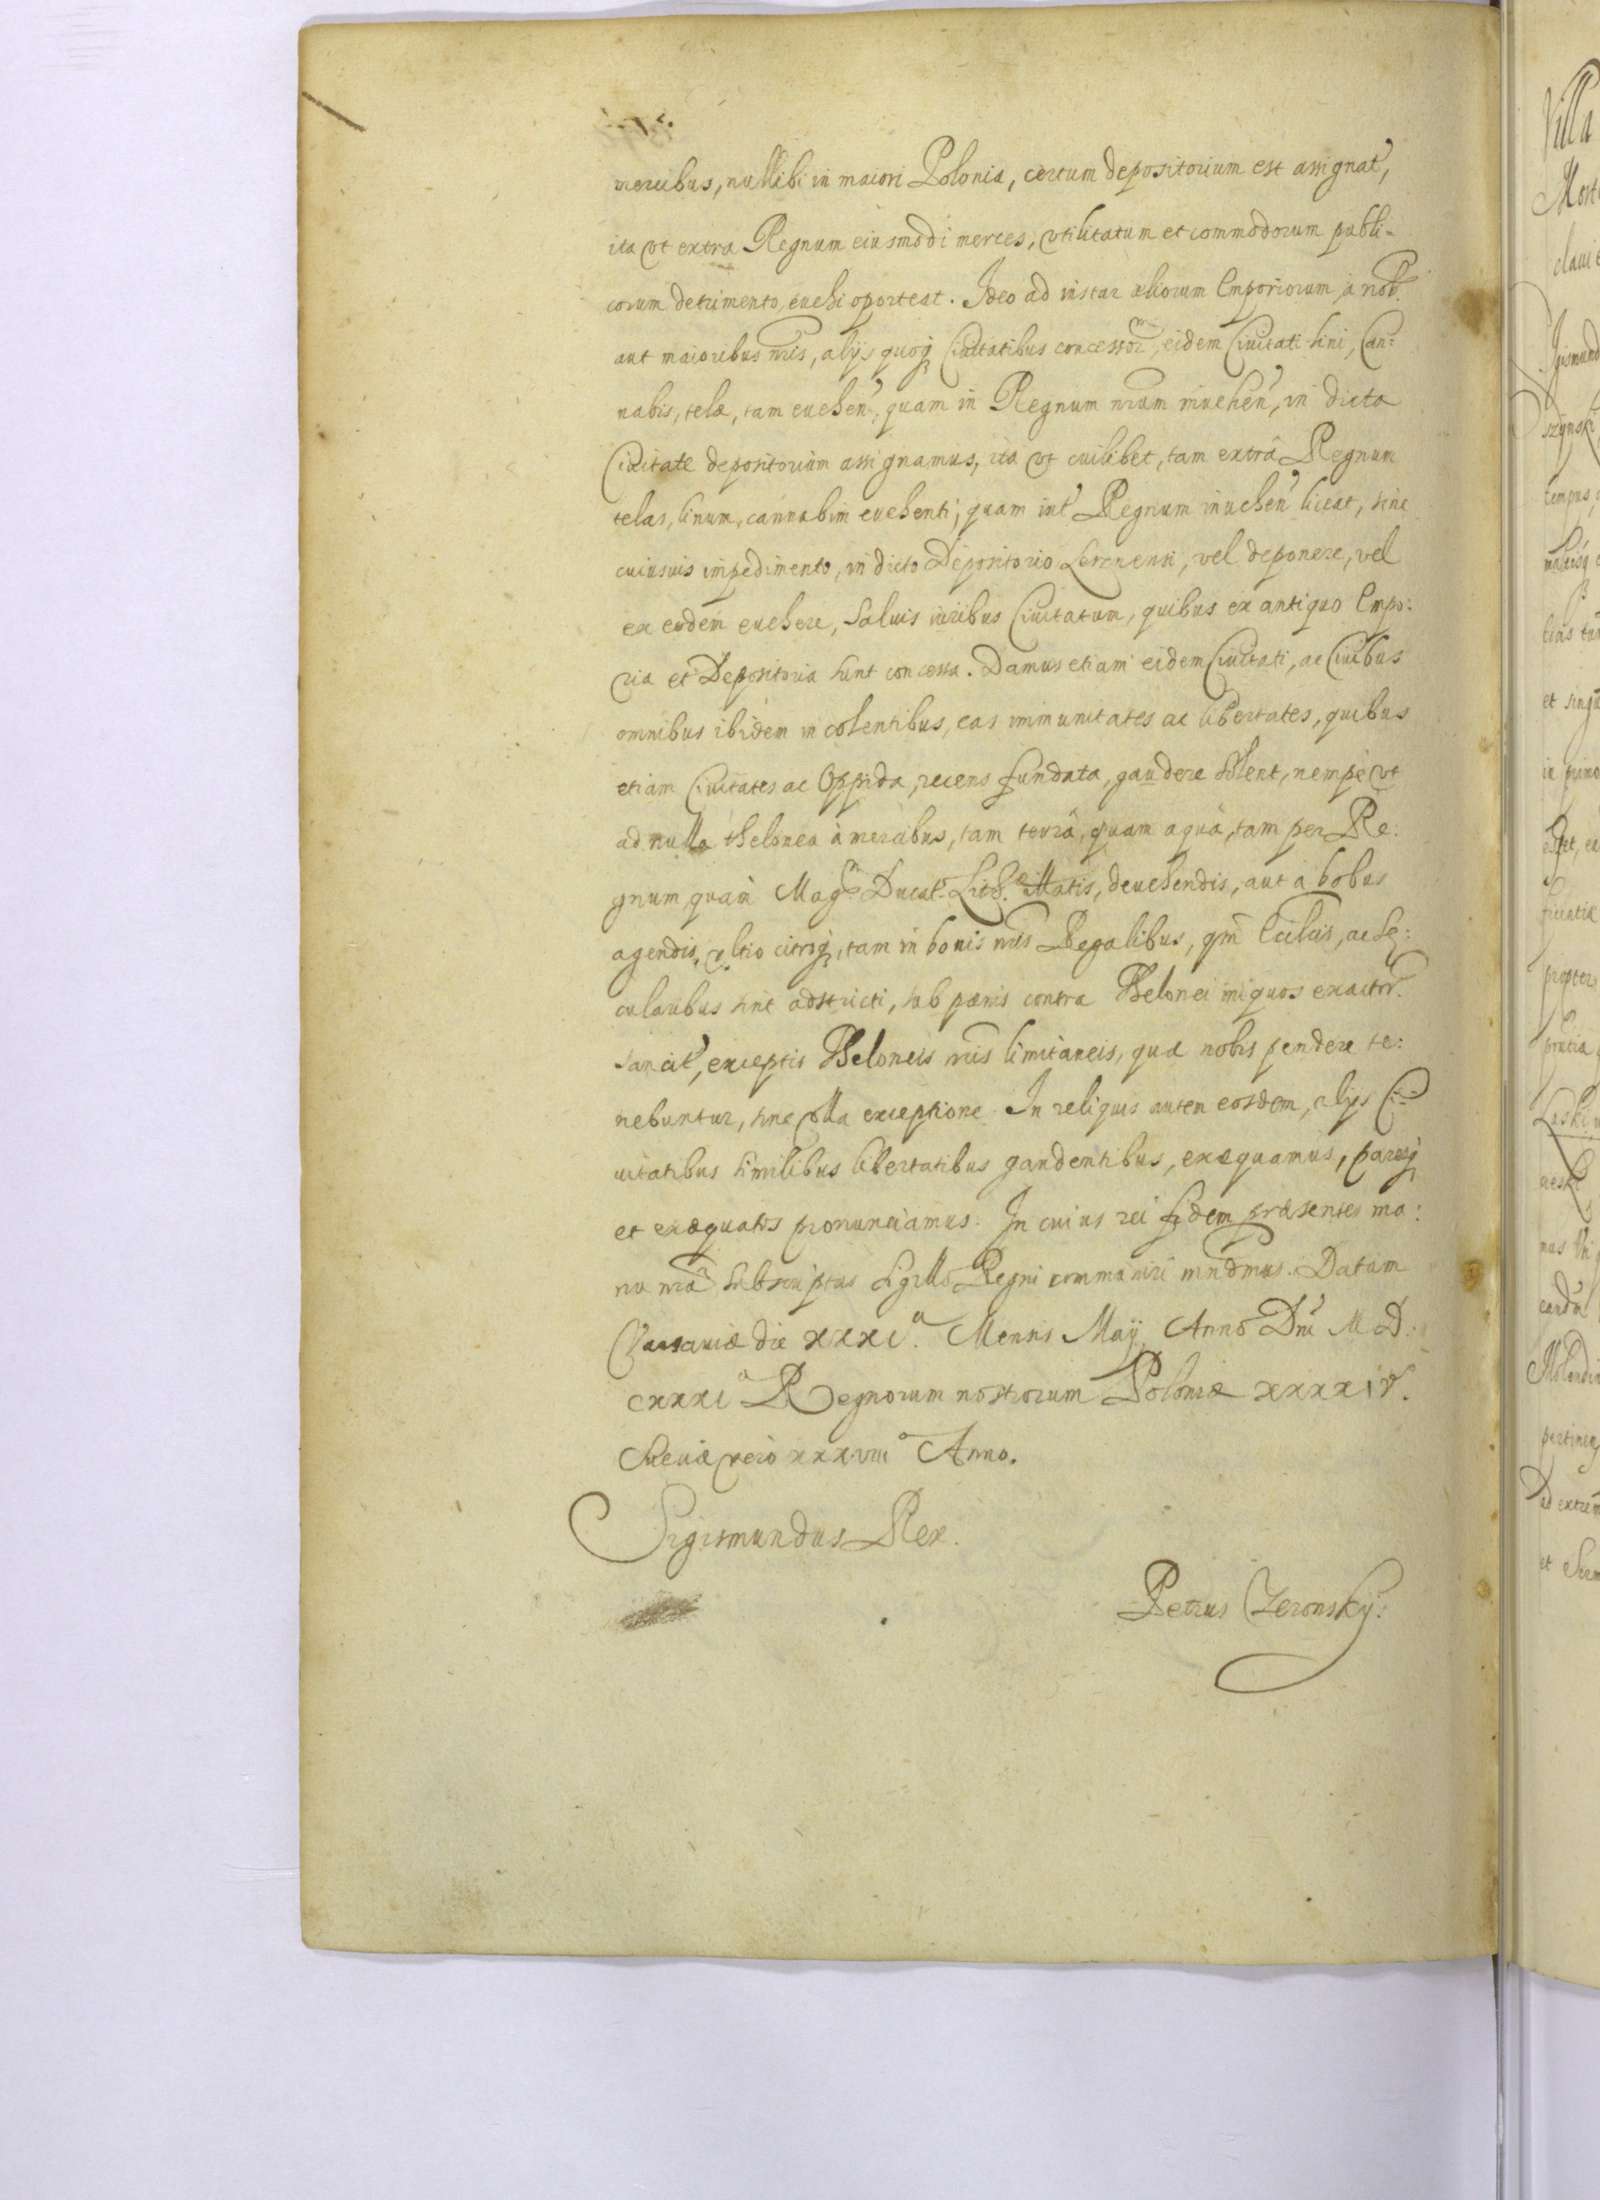 mercibus, nullibi in maiori Polonia, certum depositorium est assignat,
ita vt extra Regnum eiusmodi merces, vtilitatum et commodorum publi-
corum detrimento, euehi oporteat. Ideo ad instar aliorum Emporiorum, à nob.
aut maioribus nris, alijs quoq Ciuitatibus concessor, eidem Ciuitati lini, Can:
nabis, telæ, tam euehen, quam in Regnum nrum inuehen, in dicta
Ciuitate depositorium assignamus, ita vt cuilibet, tam extrà Regnum
telas, linum, cannabim euehenti, quam int Regnum inuehen liceat, sine
cuiusuis impedimento, in dicto Depositorio Lesznensi, vel deponere, vel
ex eodem euehere, Saluis iuribus Ciuitatum, quibus ex antiquo Empo:
ria et Depositoria sunt concessa. Damus etiam eidem Ciuitati, ac Ciuibus
omnibus ibidem incolentibus, eas immunitates ac libertates, quibus
etiam Ciuitates ac Oppida, recens fundata, gaudere solent, nempè vt
ad nulla thelonea à mercibus, tam terrâ, quam aquâ, tam per Re:
gnum quàm Mag Ducat. Lith. Matis, deuehendis, aut à bobus
agendis, vltro citroq, tam in bonis nris Regalibus, qm Ecclcis, ac Se:
cularibus sint adstricti, sub pænis contra Thelonei iniquos exactor.
sancit, exceptis Theloneis nris limitaneis, quæ nobis pendere te:
nebuntur, sine vlla exceptione. In reliquis autem eosdem, alijs Ci-
uitatibus similibus libertatibus gaudentibus, exæquamus, paresq
et exæquatos pronunciamus. In cuius rei fidem præsentes ma:
nu nra subscriptas sigillo Regni communiri mndmus. Datum
Varsauiæ die XXXIa. Mensis Maij Anno Dni MD:
CXXXI Regnorum nostrorum Poloniæ XXXXIV.
Sueciæ vero XXXVIIIo Anno.
Sigismundus Rex.
Petrus Zeronsky: